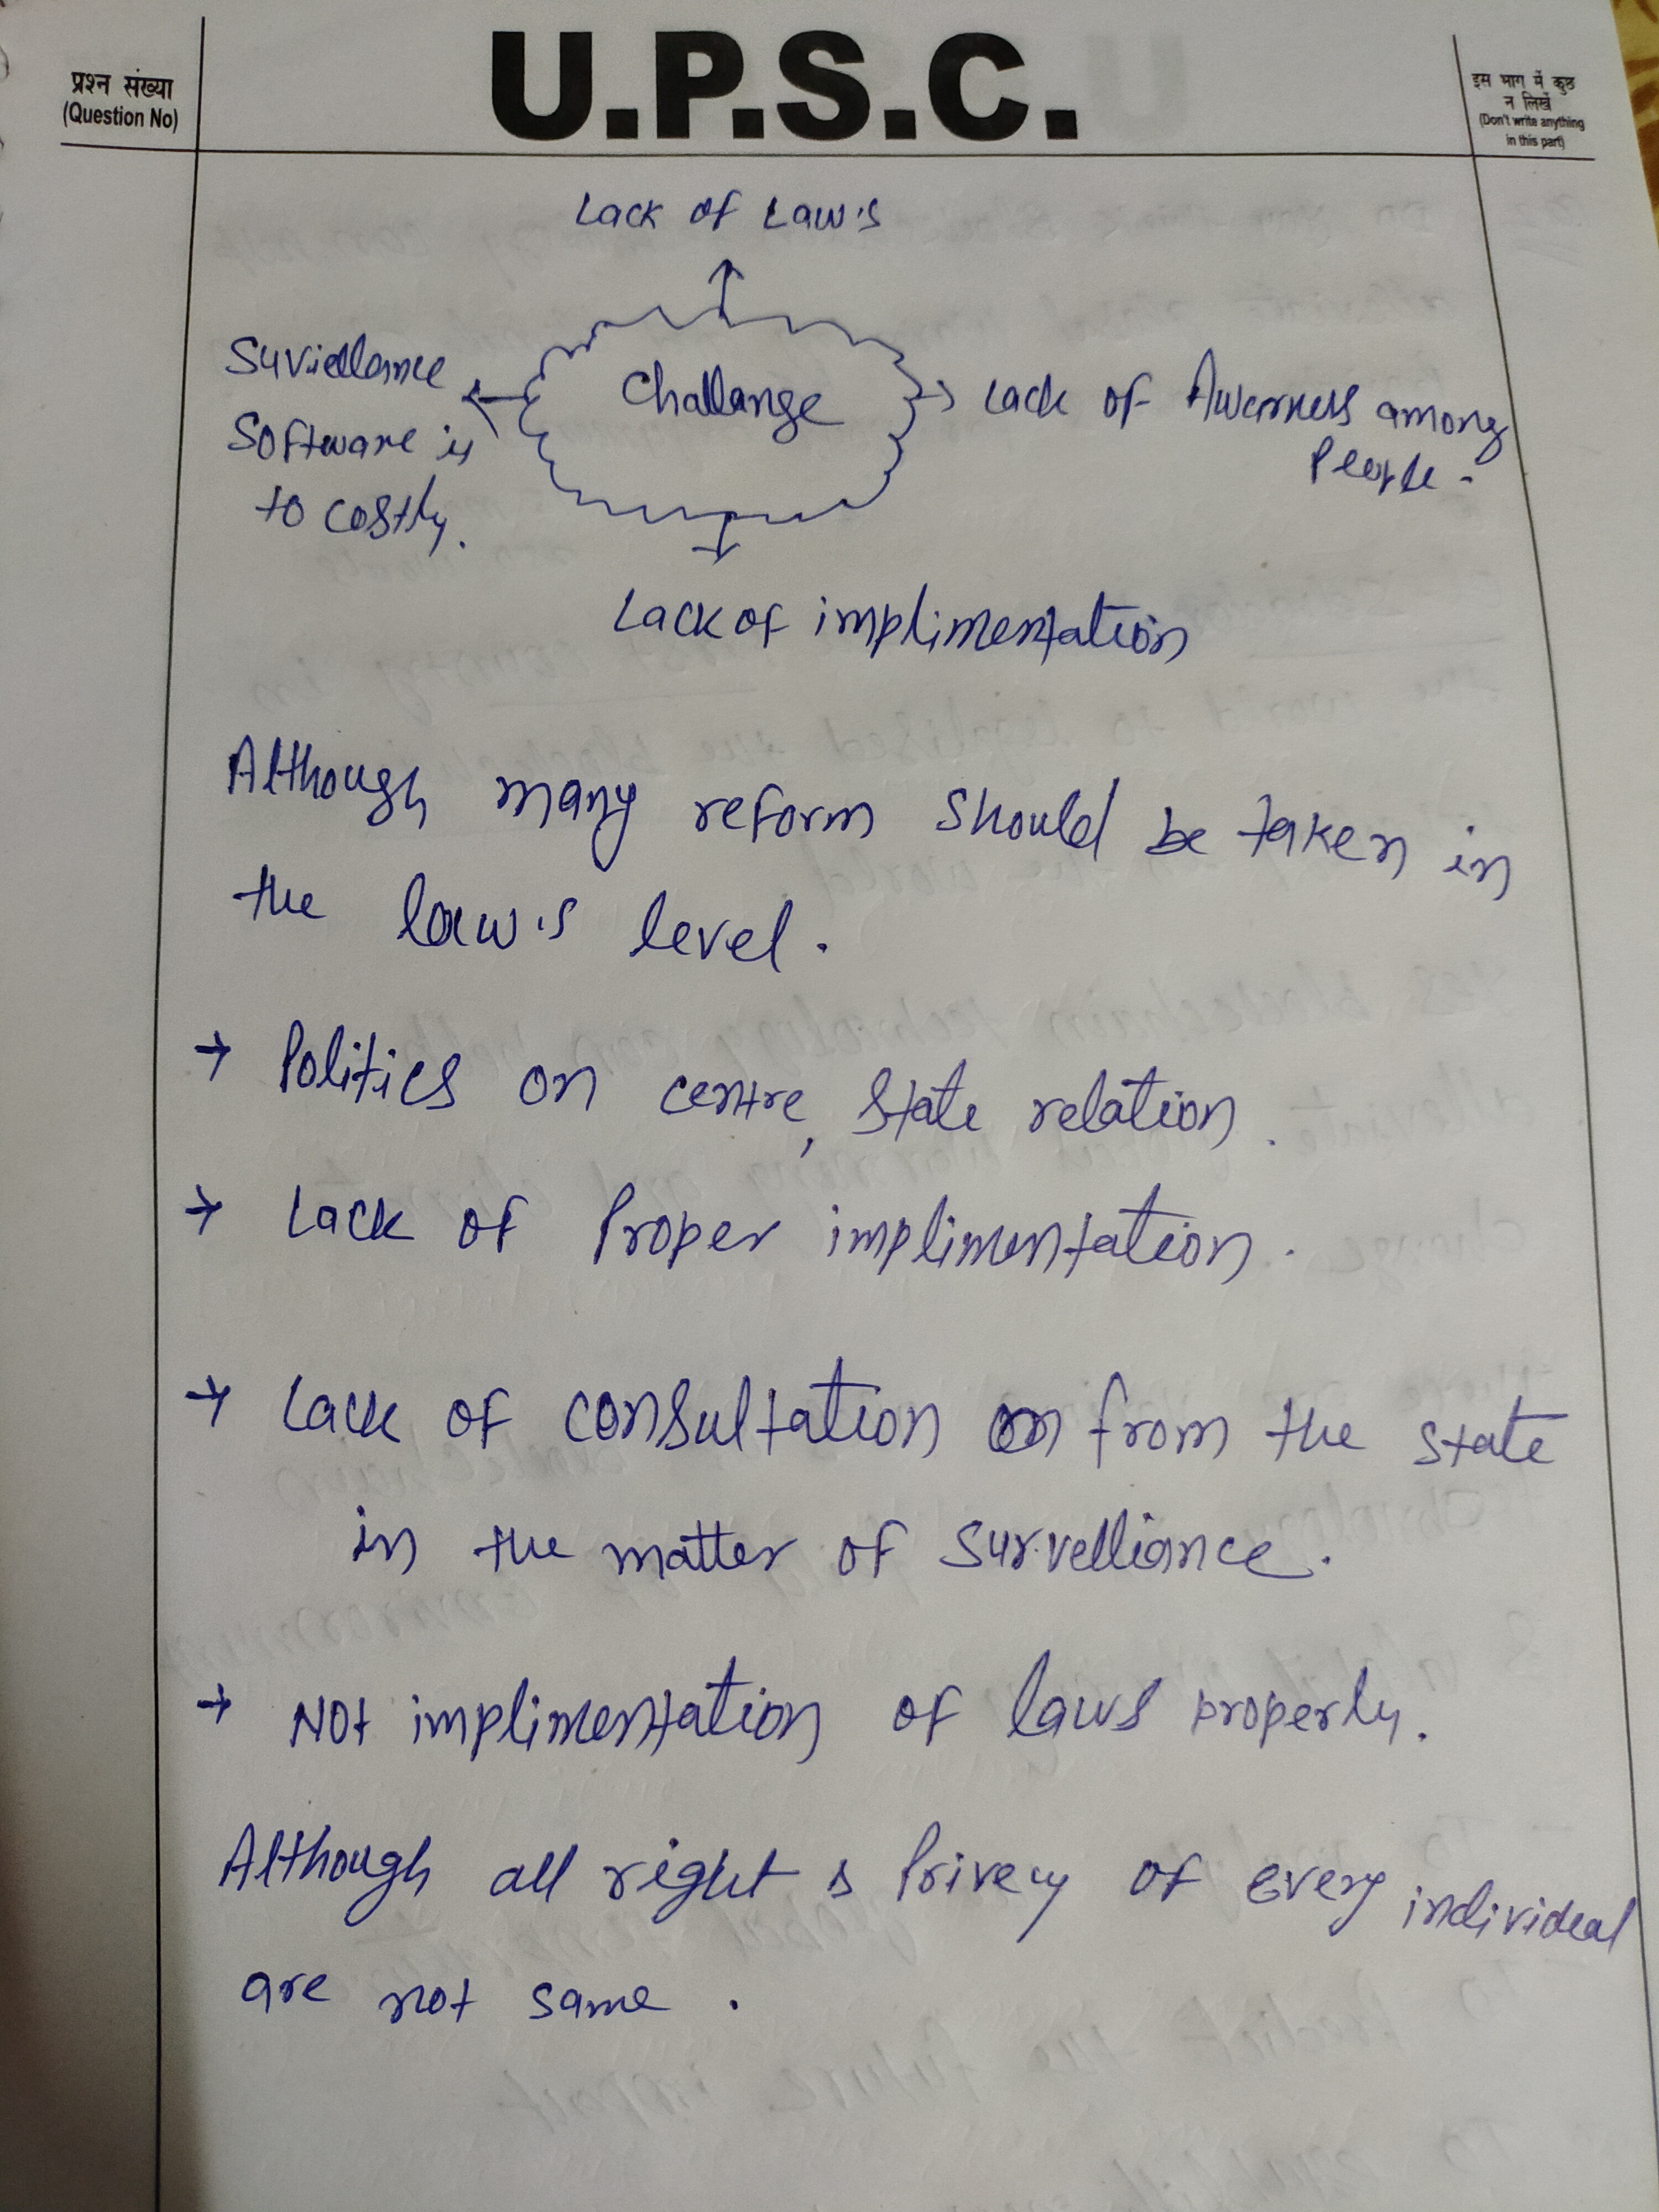 प्रश्न संख्या
(Question No)
U.P.S.C.
इस भाग में कुछ
न लिखें
(Don't write anything
in this part)
Lack of Law's
Surviellance
Software is
to costly.
Challange
Lack of Awarness among
People.
Lack of implimentation
Although many reform should be taken in
the law's level.
→ Politics on centre, state relation.
→ Lack of Proper implimentation.
→ Lack of consultation on from the state
in the matter of survelliance.
→ Not implimentation of laws properly.
Although all right s Privecy of every individeal
are not same.